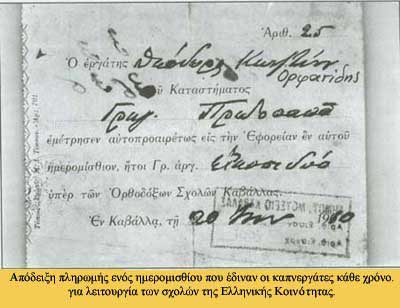 Ἀριθ. 25
Ὁ ἐργάτης
Ορφανίδης
τοῦ Καταστήματος
ἐμέτρησεν αὐτοπροαιρέτως εἰς τὴν Ἐφορείαν ἓν αὐτοῦ
ἡμερομίσθιον, ἤτοι Γρ. ἀργ. εικοσιδύο
ὑπὲρ τῶν Ὀρθοδόξων Σχολῶν Καβάλλας.
Ἐν Καβάλλᾳ, τῇ 20 1910
Απόδειξη πληρωμής ενός ημερομισθίου που έδιναν οι καπνεργάτες κάθε χρόνο.
για λειτουργία των σχολών της Ελληνικής Κοινότητας.